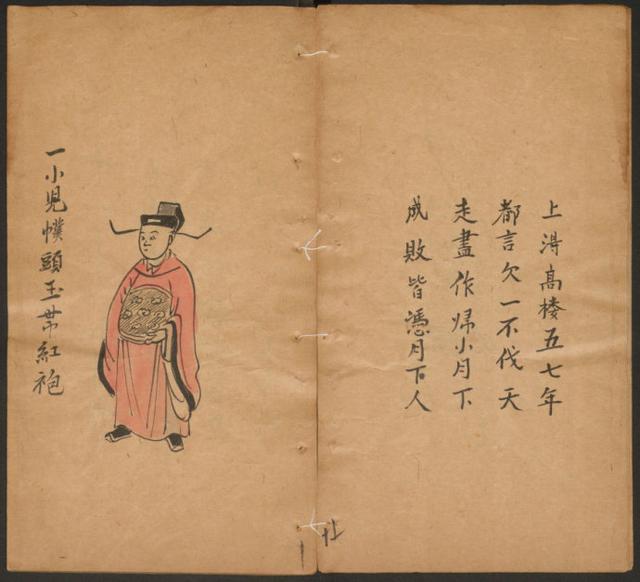 上淂高楼五七年
都言欠一不伐天
走盡作帰小月下
成敗皆憑月下人
一小児幞頭玉帶紅袍